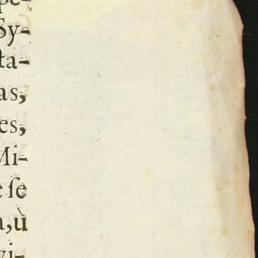 pe-
Sy-
ta-
as,
es,
Mi-
e ſe
a, ù
vi-